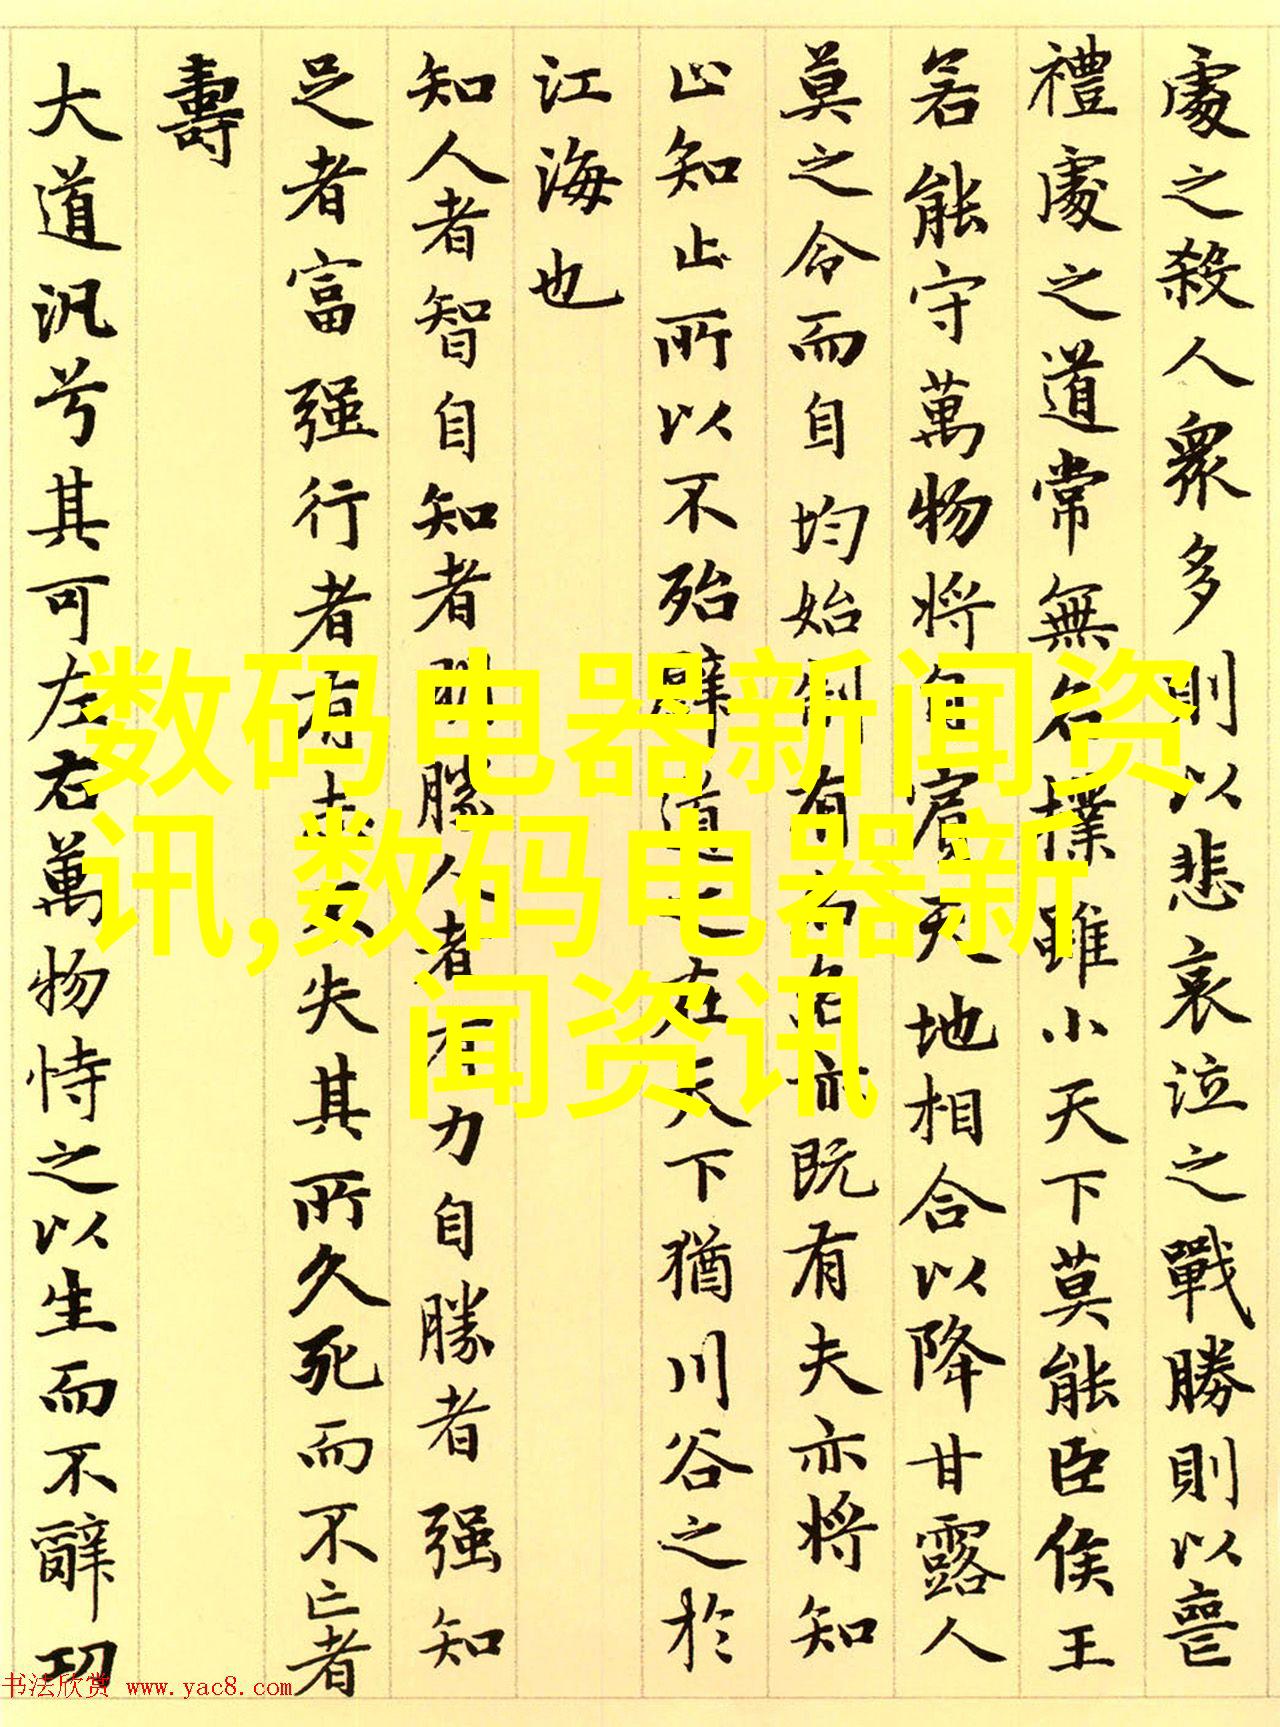 處之殺人衆多則以悲哀泣之戰勝則以喪
禮處之道常無名樸雖小天下莫能臣侯王
若能守萬物將自賓天地相合以降甘露人
莫之令而自均始制有名名亦既有夫亦將知
止知止所以不殆譬道之在天下猶川谷之於
江海也
知人者智自知者明勝人者有力自勝者强知
足者富强行者有志不失其所久死而不亡者
壽
大道汎兮其可左右萬物恃之以生而不辭功
数码电器新闻资
讯,数码电器新
闻资讯
书法欣赏 www.yac8.com